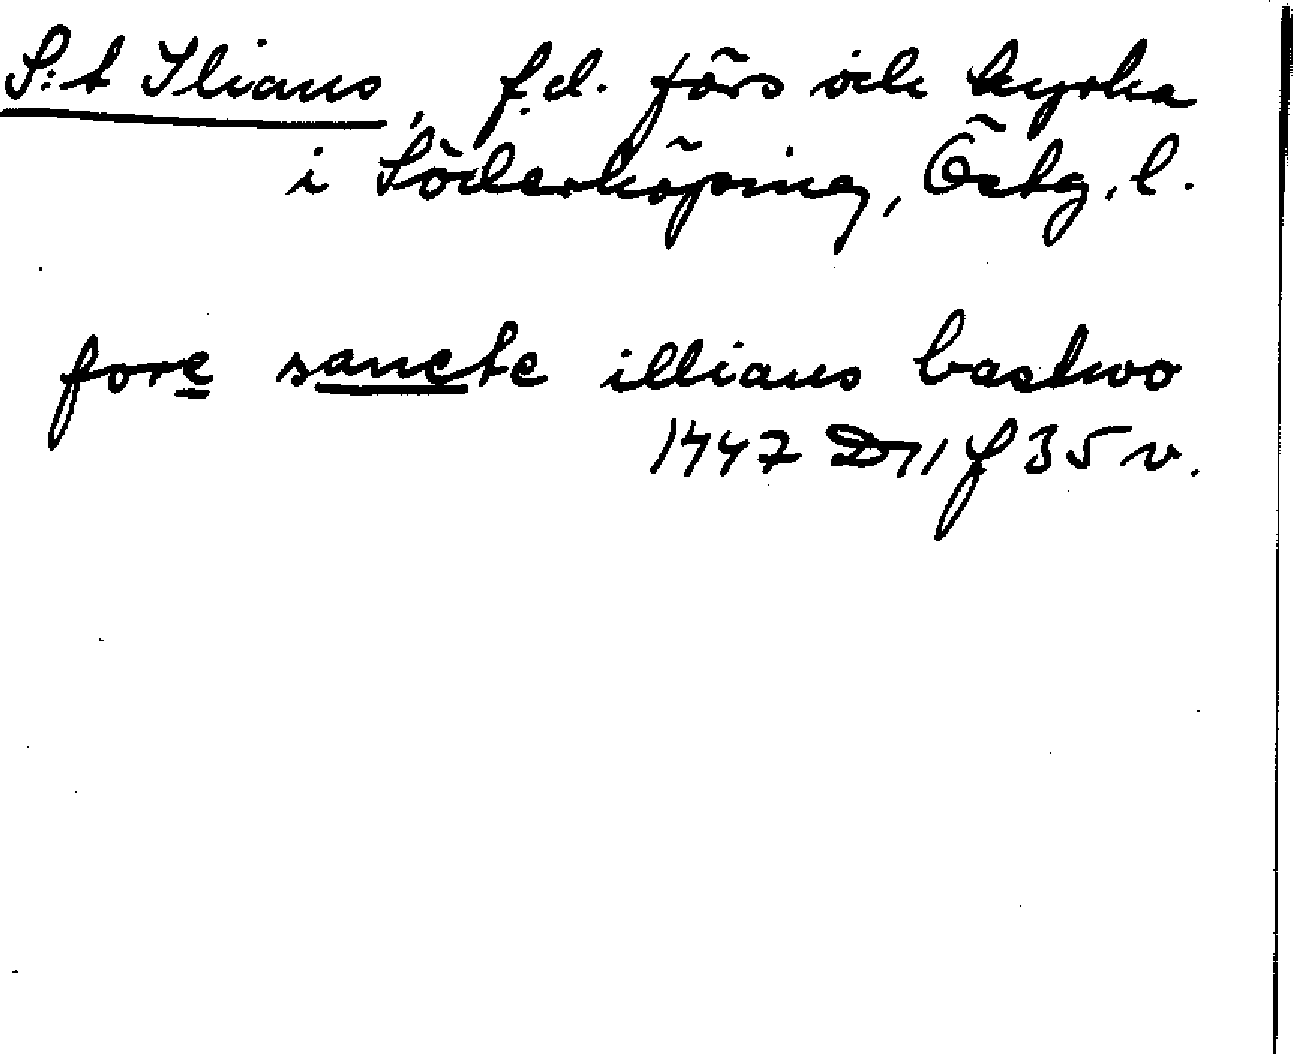 S:t Ilians, f.d. förs och kyrka
i Söderköping, Östg. l.
fore sancte illians bastwo
1447 D 11 f 35 v.